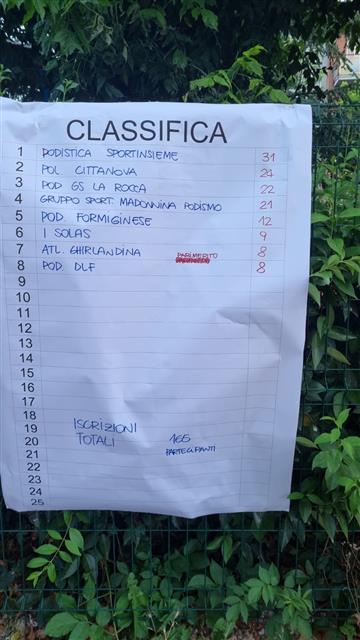 CLASSIFICA
1 PODISTICA SPORTINSIEME 31
2 POL CITTANOVA 24
3 POD GS LA ROCCA 22
4 GRUPPO SPORT. MADONNINA PODISMO 21
5 POD. FORMIGINESE 12
6 I SOLAS 9
7 ATL. GHIRLANDINA PARIMERITO 8
8 POD. DLF 8
9
10
11
12
13
14
15
16
17
18
19 ISCRIZIONI
20 TOTALI 165
21 PARTECIPANTI
22
23
24
25